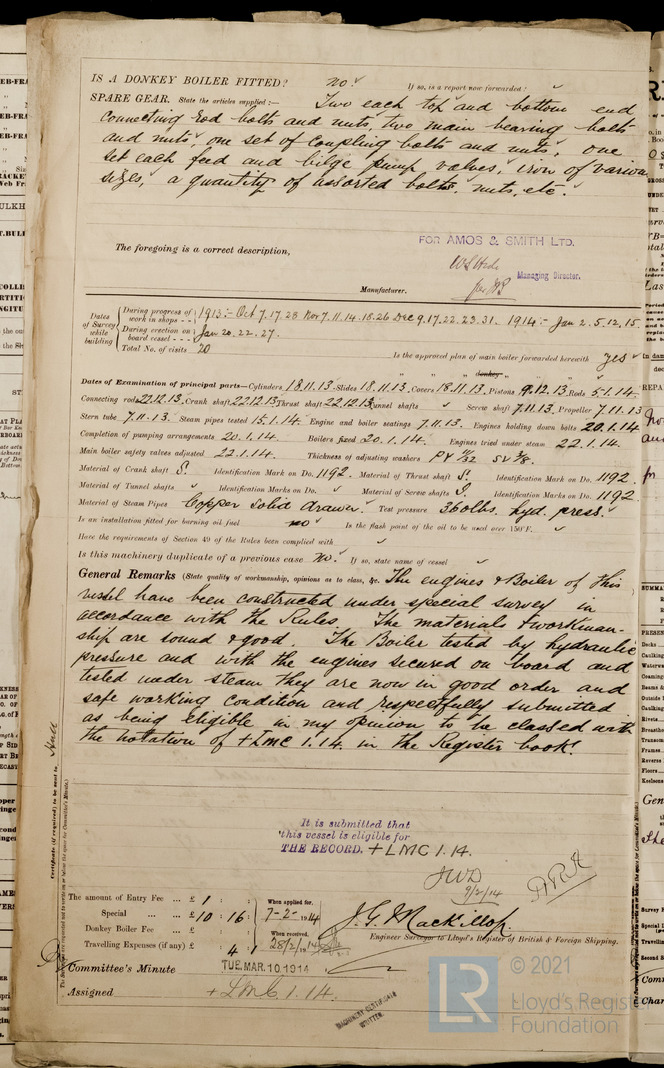 IS A DONKEY BOILER FITTED? no. If so, is a report now forwarded?
SPARE GEAR. State the articles supplied:— Two each top and bottom end
connecting rod bolts and nuts, two main bearing bolts
and nuts, one set of coupling bolts and nuts, one
set each feed and bilge pump valves, iron of various
sizes, a quantity of assorted bolts, nuts, etc.
The foregoing is a correct description,
FOR AMOS & SMITH LTD.
Managing Director.
Manufacturer.
Dates of Survey while building
During progress of work in shops -- 1913:- Oct 7.17.28 Nov 7.11.14.18.26 Dec 9.17.22.23.31. 1914:- Jan 2.5.12.15.
During erection on board vessel --- Jan 20.22.27.
Total No. of visits 20
Is the approved plan of main boiler forwarded herewith yes
" " " donkey " " "
Dates of Examination of principal parts—Cylinders 18.11.13. Slides 18.11.13. Covers 18.11.13. Pistons 9.12.13. Rods 5.1.14.
Connecting rods 22.12.13. Crank shaft 22.12.13 Thrust shaft 22.12.13 Tunnel shafts Screw shaft 7.11.13. Propeller 7.11.13
Stern tube 7.11.13. Steam pipes tested 15.1.14. Engine and boiler seatings 7.11.13. Engines holding down bolts 20.1.14.
Completion of pumping arrangements 20.1.14. Boilers fixed 20.1.14. Engines tried under steam 22.1.14.
Main boiler safety valves adjusted 22.1.14. Thickness of adjusting washers PV 11/32 SV 3/8.
Material of Crank shaft S. Identification Mark on Do. 1192. Material of Thrust shaft S. Identification Mark on Do. 1192
Material of Tunnel shafts Identification Marks on Do. Material of Screw shafts S. Identification Marks on Do. 1192
Material of Steam Pipes Copper solid drawn. Test pressure 360 lbs. hyd. press.
Is an installation fitted for burning oil fuel no Is the flash point of the oil to be used over 150°F.
Have the requirements of Section 49 of the Rules been complied with
Is this machinery duplicate of a previous case No. If so, state name of vessel
General Remarks (State quality of workmanship, opinions as to class, &c. The engines & Boiler of this
vessel have been constructed under special survey in
accordance with the Rules. The materials & workman-
ship are sound & good. The Boiler tested by hydraulic
pressure and with the engines secured on board and
tested under steam they are now in good order and
safe working condition and respectfully submitted
as being eligible in my opinion to be classed with
the notation of + LMC 1.14. in the Register book.
Certificate (if required) to be sent to Hull
It is submitted that
this vessel is eligible for
THE RECORD. + LMC 1.14.
JWD
9/2/14
The amount of Entry Fee ... £ 1 : :
Special ... £ 10 : 16 :
Donkey Boiler Fee ... £ : :
Travelling Expenses (if any) £ : 4 : 1
When applied for, 7-2-1914
When received, 28/2/1914
J. G. Mackillop
Engineer Surveyor to Lloyd's Register of British & Foreign Shipping.
Committee's Minute TUE. MAR. 10 1914
Assigned + LMC 1.14.
MACHINERY CERTIFICATE
WRITTEN.
© 2021
LR
Lloyd's Register
Foundation